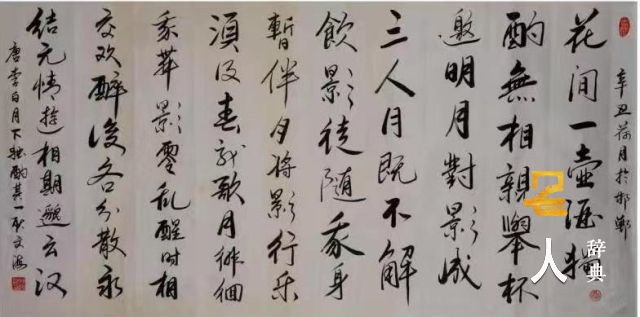 辛丑荷月於邯鄲
花间一壶酒獨
酌無相親舉杯
邀明月對影成
三人月既不解
飲影徒隨我身
暫伴月将影行乐
須及春我歌月徘徊
我舞影零乱醒时相
交欢醉後各分散永
结无情遊相期邈云汉
唐李白月下独酌其一耿文海
人
辞典